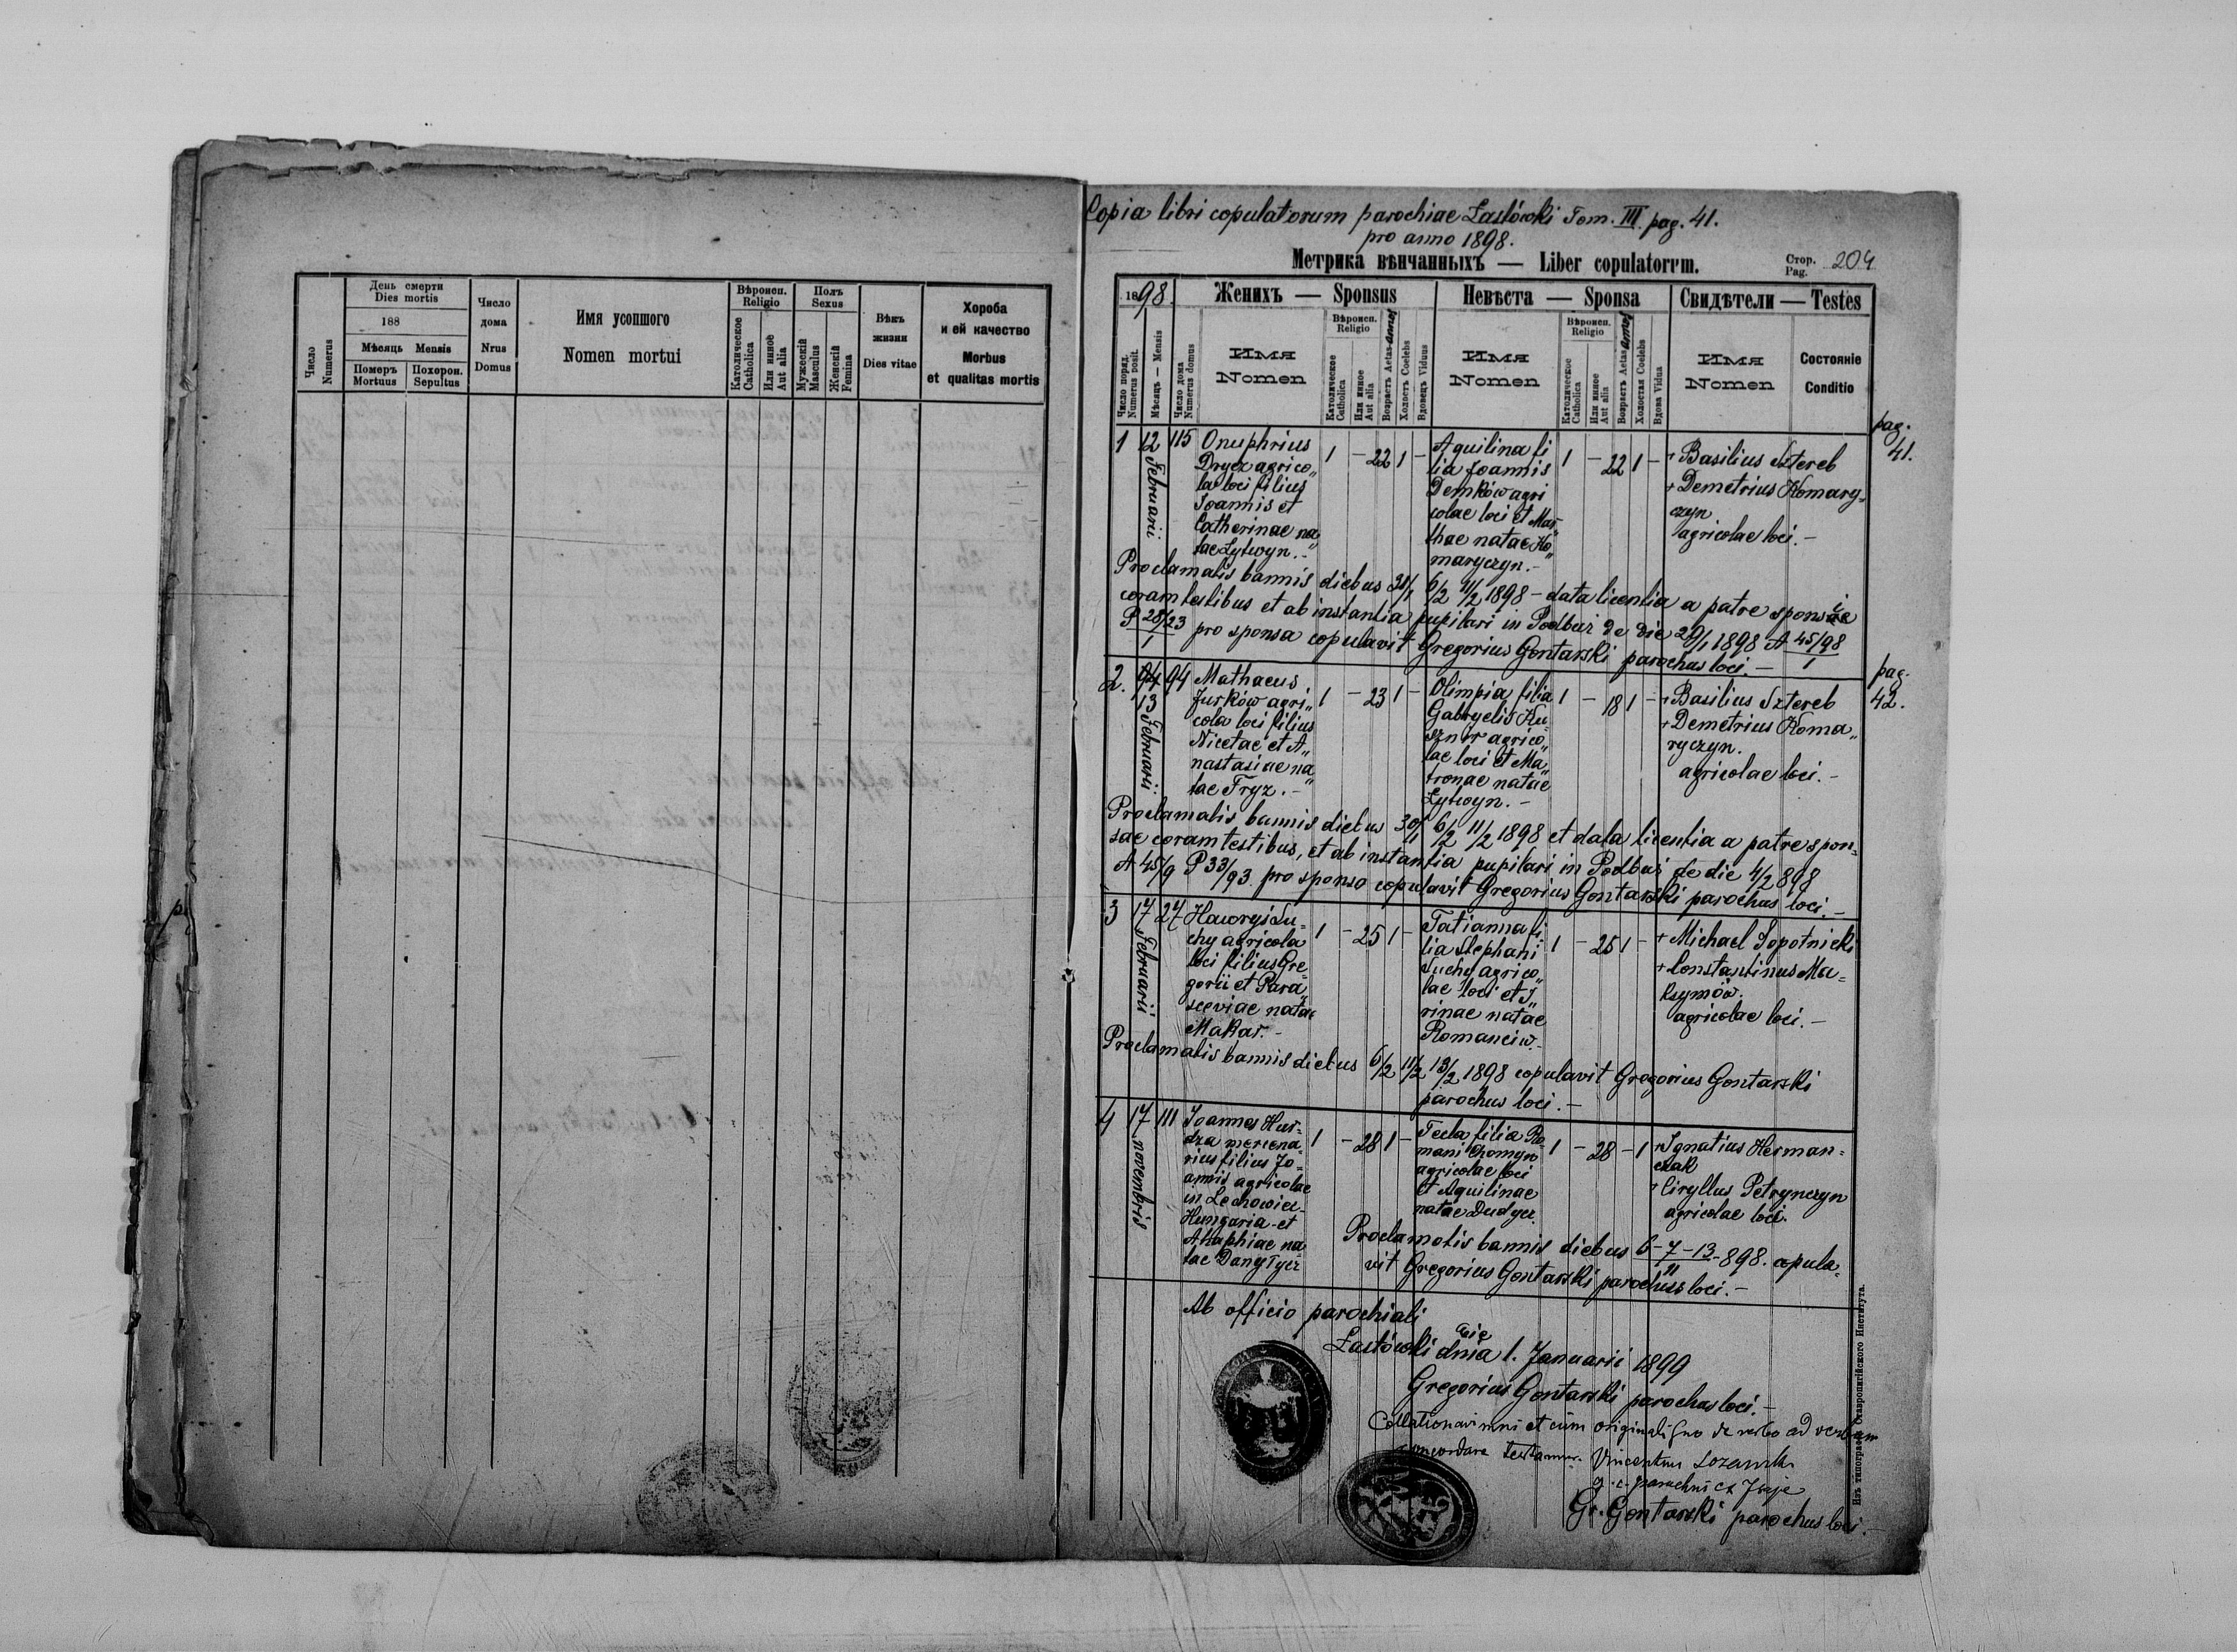 Число
Numerus
День смерти
Dies mortis
188
Мѣсяць Mensis
Померъ
Mortuus
Похорон.
Sepultus
Число
дома
Nrus
Domus
Имя усопшого
Nomen mortui
Вѣроисп.
Religio
Католическое
Catholica
Или иное
Aut alia
Полъ
Sexus
Мужескій
Masculus
Женскій
Femina
Вѣкъ
жизни
Dies vitae
Хороба
и ей качество
Morbus
et qualitas mortis
Copia libri copulatorum parochiae Łastówki Tom. III pag. 41.
pro anno 1898.
Метрика вѣнчанныхъ — Liber copulatorum.
Стор.
Pag. 204
1898.
Женихъ — Sponsus
Невѣста — Sponsa
Свидѣтели — Testes
Число поряд.
Numerus posit.
Мѣсяць — Mensis
Число дома
Numerus domus
Имя
Nomen
Вѣроисп.
Religio
Католическое
Catholica
Или иное
Aut alia
Возрастъ Aetas annor
Холостъ Coelebs
Вдовец Viduus
Имя
Nomen
Вѣроисп.
Religio
Католическое
Catholica
Или иное
Aut alia
Возрастъ Aetas annor
Холостая Coelebs
Вдова Vidua
Имя
Nomen
Состояніе
Conditio
pag.
41.
1 12 Februarii 115
Onuphrius
Drycz agrico„
la loci filius
Joannis et
Catherinae na„
tae Lytwyn.-
1 - 22 1 -
Aquilina fi
lia Joannis
Demków agri
colae loci et Mar„
thae natae Ko„
maryczyn.-
1 - 22 1 -
+ Basilius Sztereb
+ Demetrius Komary=
czyn
agricolae loci.-
Proclamatis bannis diebus 30/1 6/2 11/2 1898 - data licentia a patre sponsae
coram testibus et ab instantia pupilari in Podbuż de die 29/1 1898 A 45/98
P 28/93 pro sponsa copulavit Gregorius Gontarski parochus loci.-
pag.
42.
2. 13 Februarii. 94
Mathaeus
Jurków agri„
cola loci filius
Nicetae et A„
nastasiae na„
tae Fryz.-
1 - 23 1 -
Olimpia filia
Gabryelis Ku-
sznir agrico„
lae loci et Ma„
tronae natae
Lytwyn.-
1 - 18 1 -
+ Basilius Sztereb
+ Demetrius Koma„
ryczyn.
agricolae loci.-
Proclamatis bannis diebus 30/1 6/2 11/2 1898 et data licentia a patre spon=
sae coram testibus, et ab instantia pupilari in Podbuż de die 4/2 898
A 45/9 P 33/93. pro sponso copulavit Gregorius Gontarski parochus loci.-
3 17 Februarii 27
Hawryj Su=
chy agricola
loci filius Gre„
gorii et Para„
sceviae natae
Makar.-
1 - 25 1 -
Tatianna fi
lia Stephani
Suchy agrico„
lae loci et I„
rinae natae
Romanciw.-
1 - 25 1 -
+ Michael Sopotnicki
+ Constantinus Ma=
ksymów.
agricolae loci.-
Proclamatis bannis diebus 6/2 11/2 13/2 1898 copulavit Gregorius Gontarski
parochus loci.-
4 17 novembris 111
Joannes Hur=
dza mercena„
rius filius Jo=
annis agricolae
in Lechowiec
Hungaria et
Ahaphiae na„
tae Danyłycz
1 - 28 1 -
Tecla filia Ro
mani Chomyn
agricolae loci
et Aquilinae
natae Dudycz.
1 - 28 - 1
+ Ignatius Herman=
czak
+ Ciryllus Petrynczyn
agricolae loci.
Proclamatis bannis diebus 6-7-13/11-898. copula=
vit Gregorius Gontarski parochus loci.-
Ab officio parochiali
Łastówki die 1. Januarii 1899
Gregorius Gontarski parochus loci.-
Collationavimus et cum originali suo de verbo ad verbum
concordare testamur. Vincentius
g. c. parochus
Gr. Gontarski parochus loci.-
Изъ типографіи Ставропигійского Института.